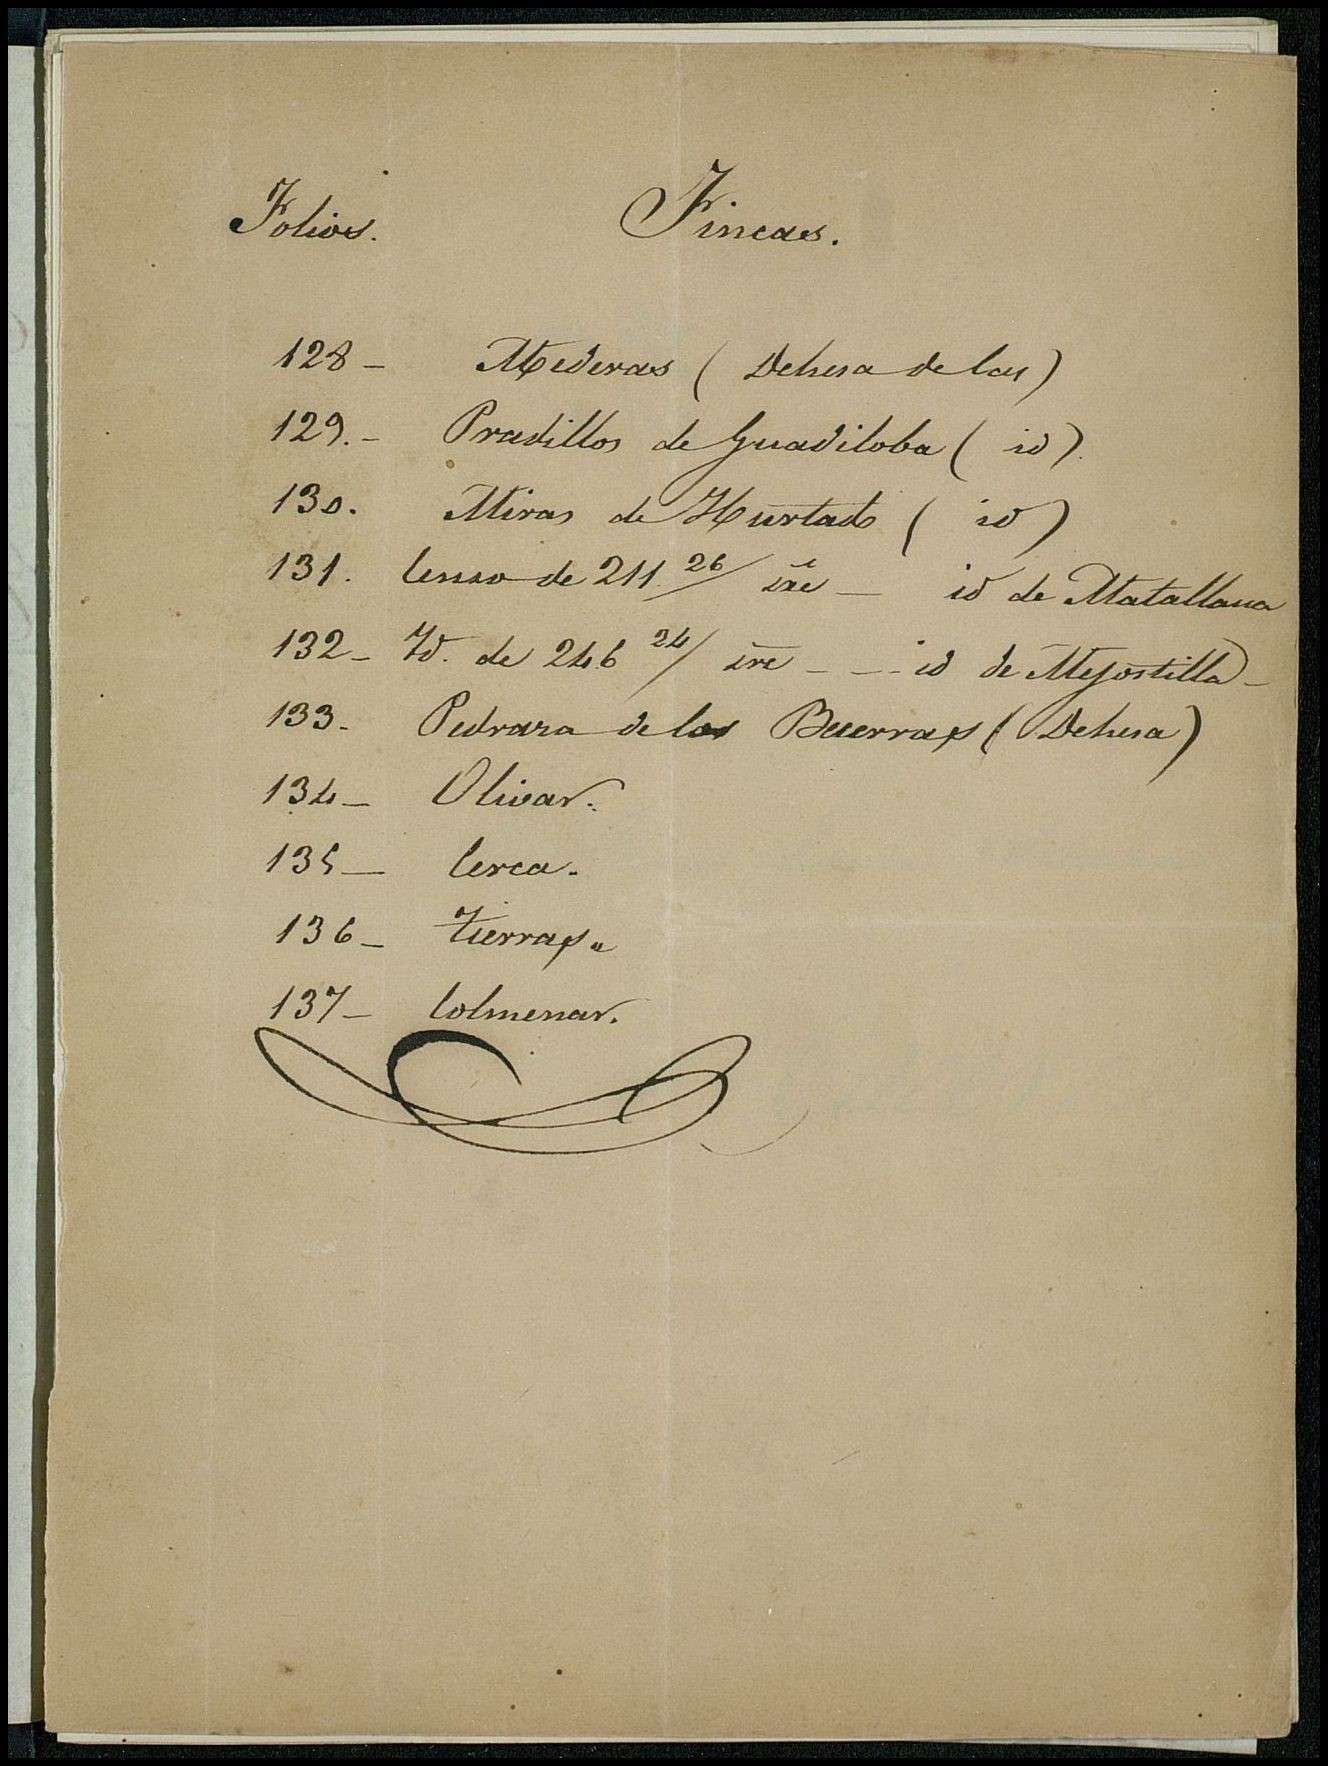 Folios. Fincas.
128 - Mederas (Dehesa de las)
129. - Pradillos de Guadiloba (id).
130. Miras de Hurtado (id)
131. Censo de 211. 26/ — id de Matallana
132 - Yd. de 246 24/ - - id de Mejostilla -
133 - Pedraza de los Becerras (Dehesa)
134 - Olivar.
135 — Cerca.
136 - Tierras.
137 - Colmenar.